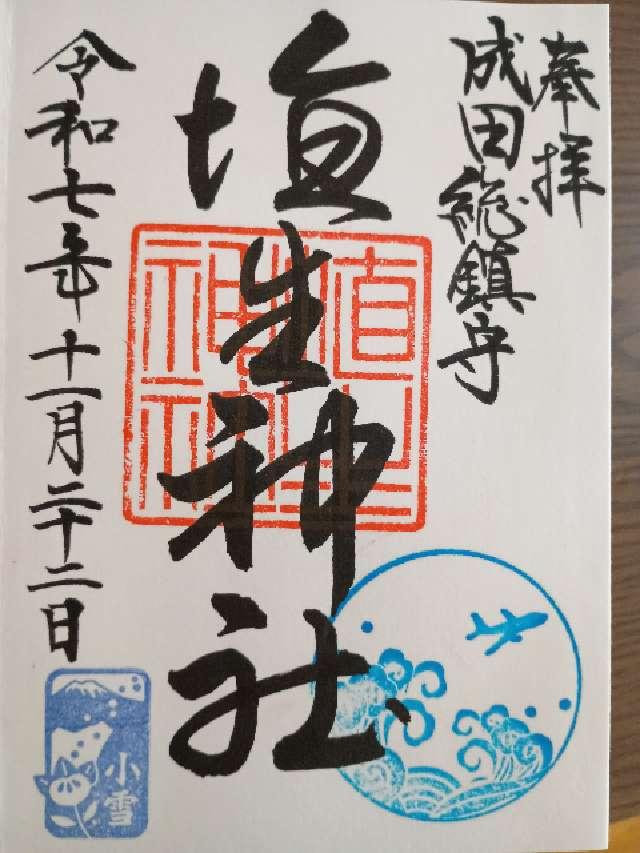 奉拝
成田総鎮守
埴生神社
令和七年十一月二十二日
小雪